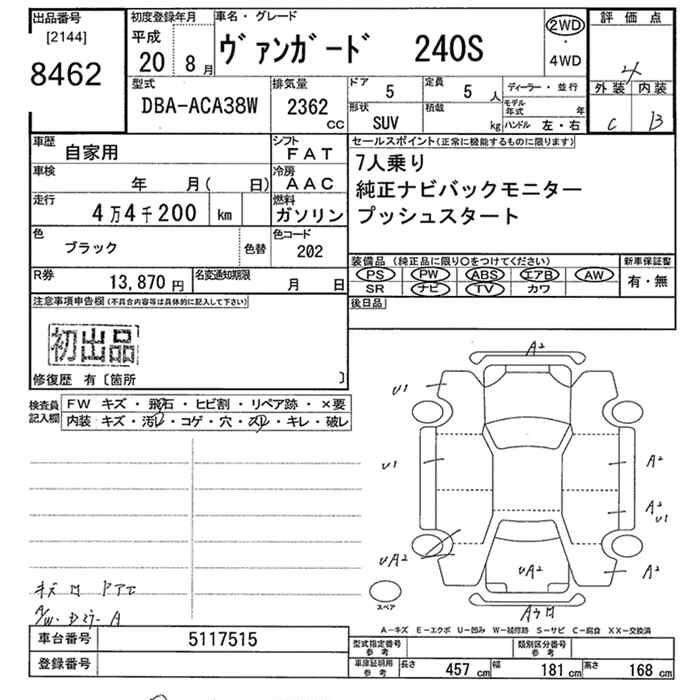 出品番号 初度登録年月 車名・グレード 評価点
[2144] 平成 2WD
8462 20 8月 ヴァンガード 240S ・ 4WD 4
型式 排気量 ドア 5 定員 5人 ディーラー・並行 外装 内装
DBA-ACA38W 2362 cc 形状 SUV 積載 kg モデル年式 年 ハンドル 左・右 C B
車歴 自家用 シフト FAT セールスポイント(正常に機能するものに限ります)
車検 年 月( 日) 冷房 AAC 7人乗り
走行 4万4千200 km 燃料 ガソリン 純正ナビバックモニター
プッシュスタート
色 ブラック 色替 色コード 202
装備品 (純正品に限り○をつけてください) 新車保証書
R券 13,870円 名変通知期限 月 日 PS PW ABS エアB AW 有・無
SR ナビ TV カワ
注意事項申告欄(不具合内容等は具体的に記入して下さい) 後日品
初出品
修復歴 有〔箇所 〕
検査員記入欄 FW キズ・飛石・ヒビ割・リペア跡・×要
内装 キズ・汚れ・コゲ・穴・スレ・キレ・破レ
A2
U1
U1 A2
A2 U1
UA2 UA2 A2
スペア
A-キズ E-エクボ U-凹み W-補修跡 S-サビ C-腐食 XX-交換済
車台番号 5117515 型式指定番号 参考 類別区分番号 参考
登録番号 車庫証明用 参考 長さ 457 cm 幅 181 cm 高さ 168 cm